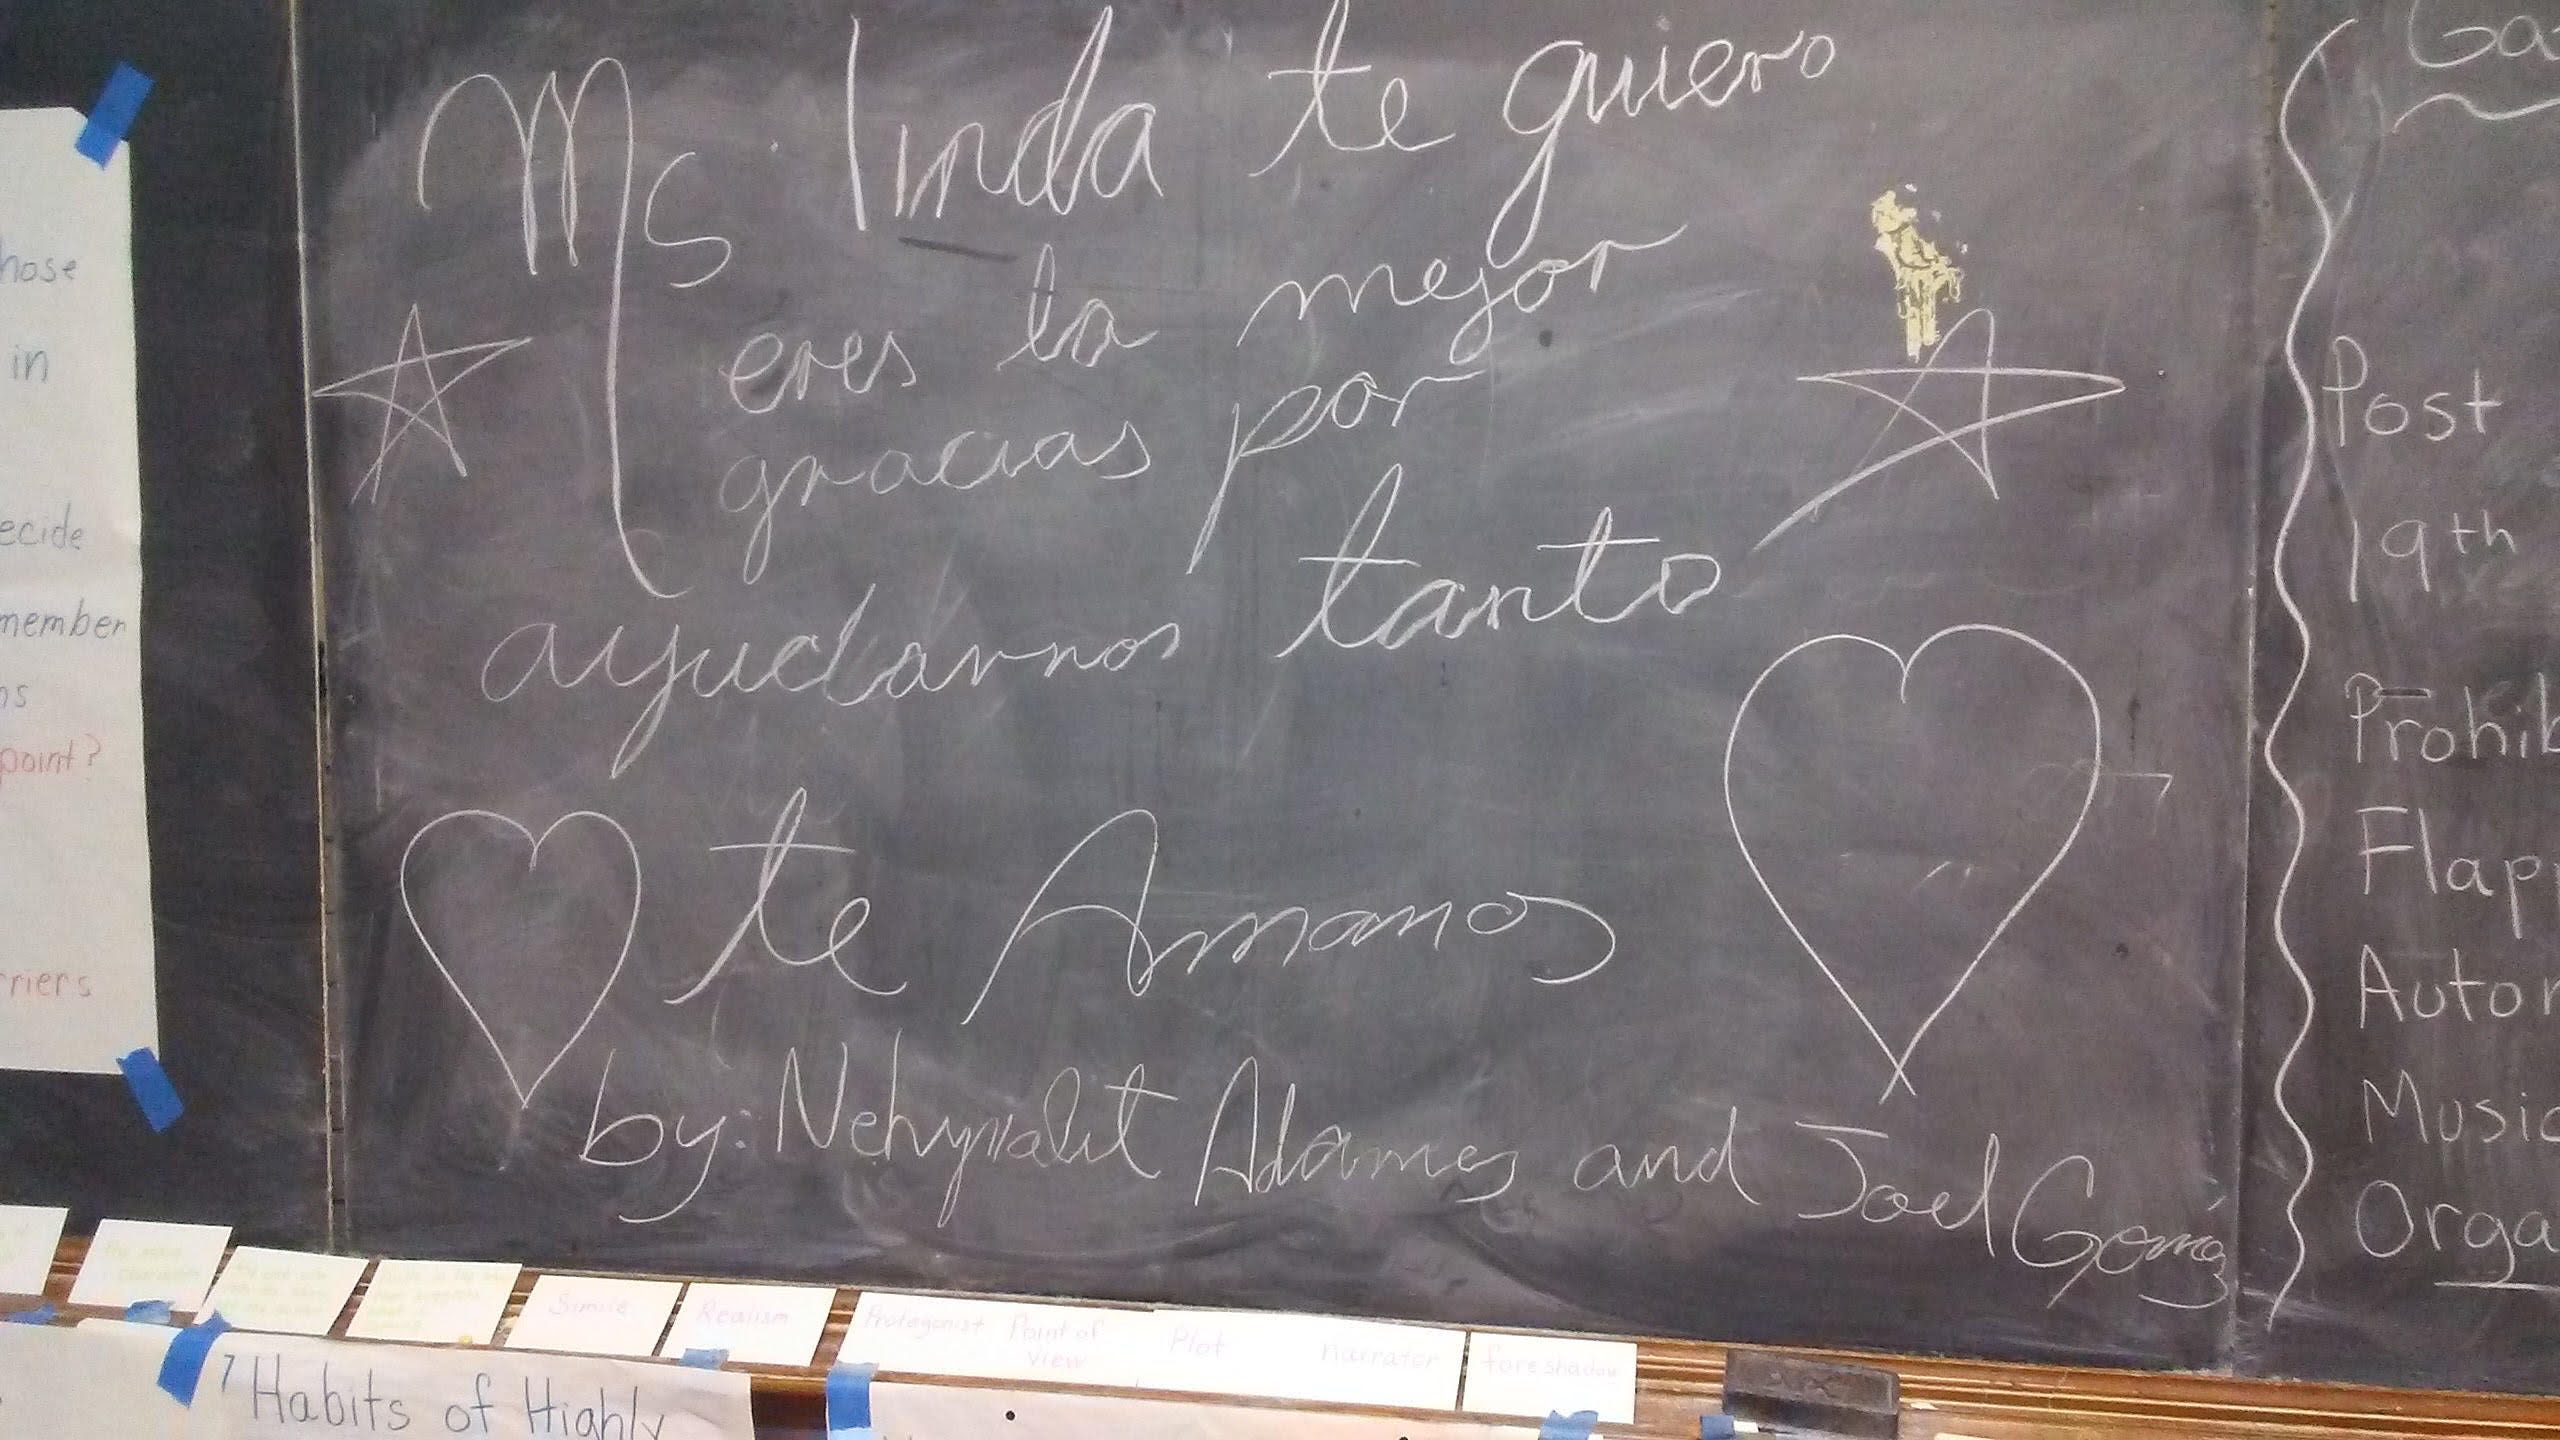 hose
in
ecide
member
ns
point?
rriers
Ms. linda te quiero
eres la mejor
gracias por
ayudarnos tanto
te Amamos
by: Nehynalit Adames and Joel Gomez
Ga
Post
19th
Prohib
Flapp
Autom
Music
Orga
Simile
Realism
Protagonist
Point of
view
Plot
narrator
foreshadow
7 Habits of Highly